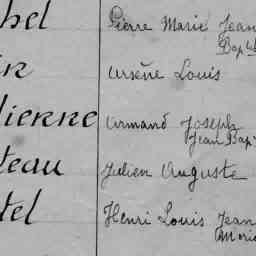 hel Pierre Marie Jean
Bapt
in Arsène Louis
lierne Armand Joseph
Jean Bap
teau Julien Auguste
tel Henri Louis Jean
Marie